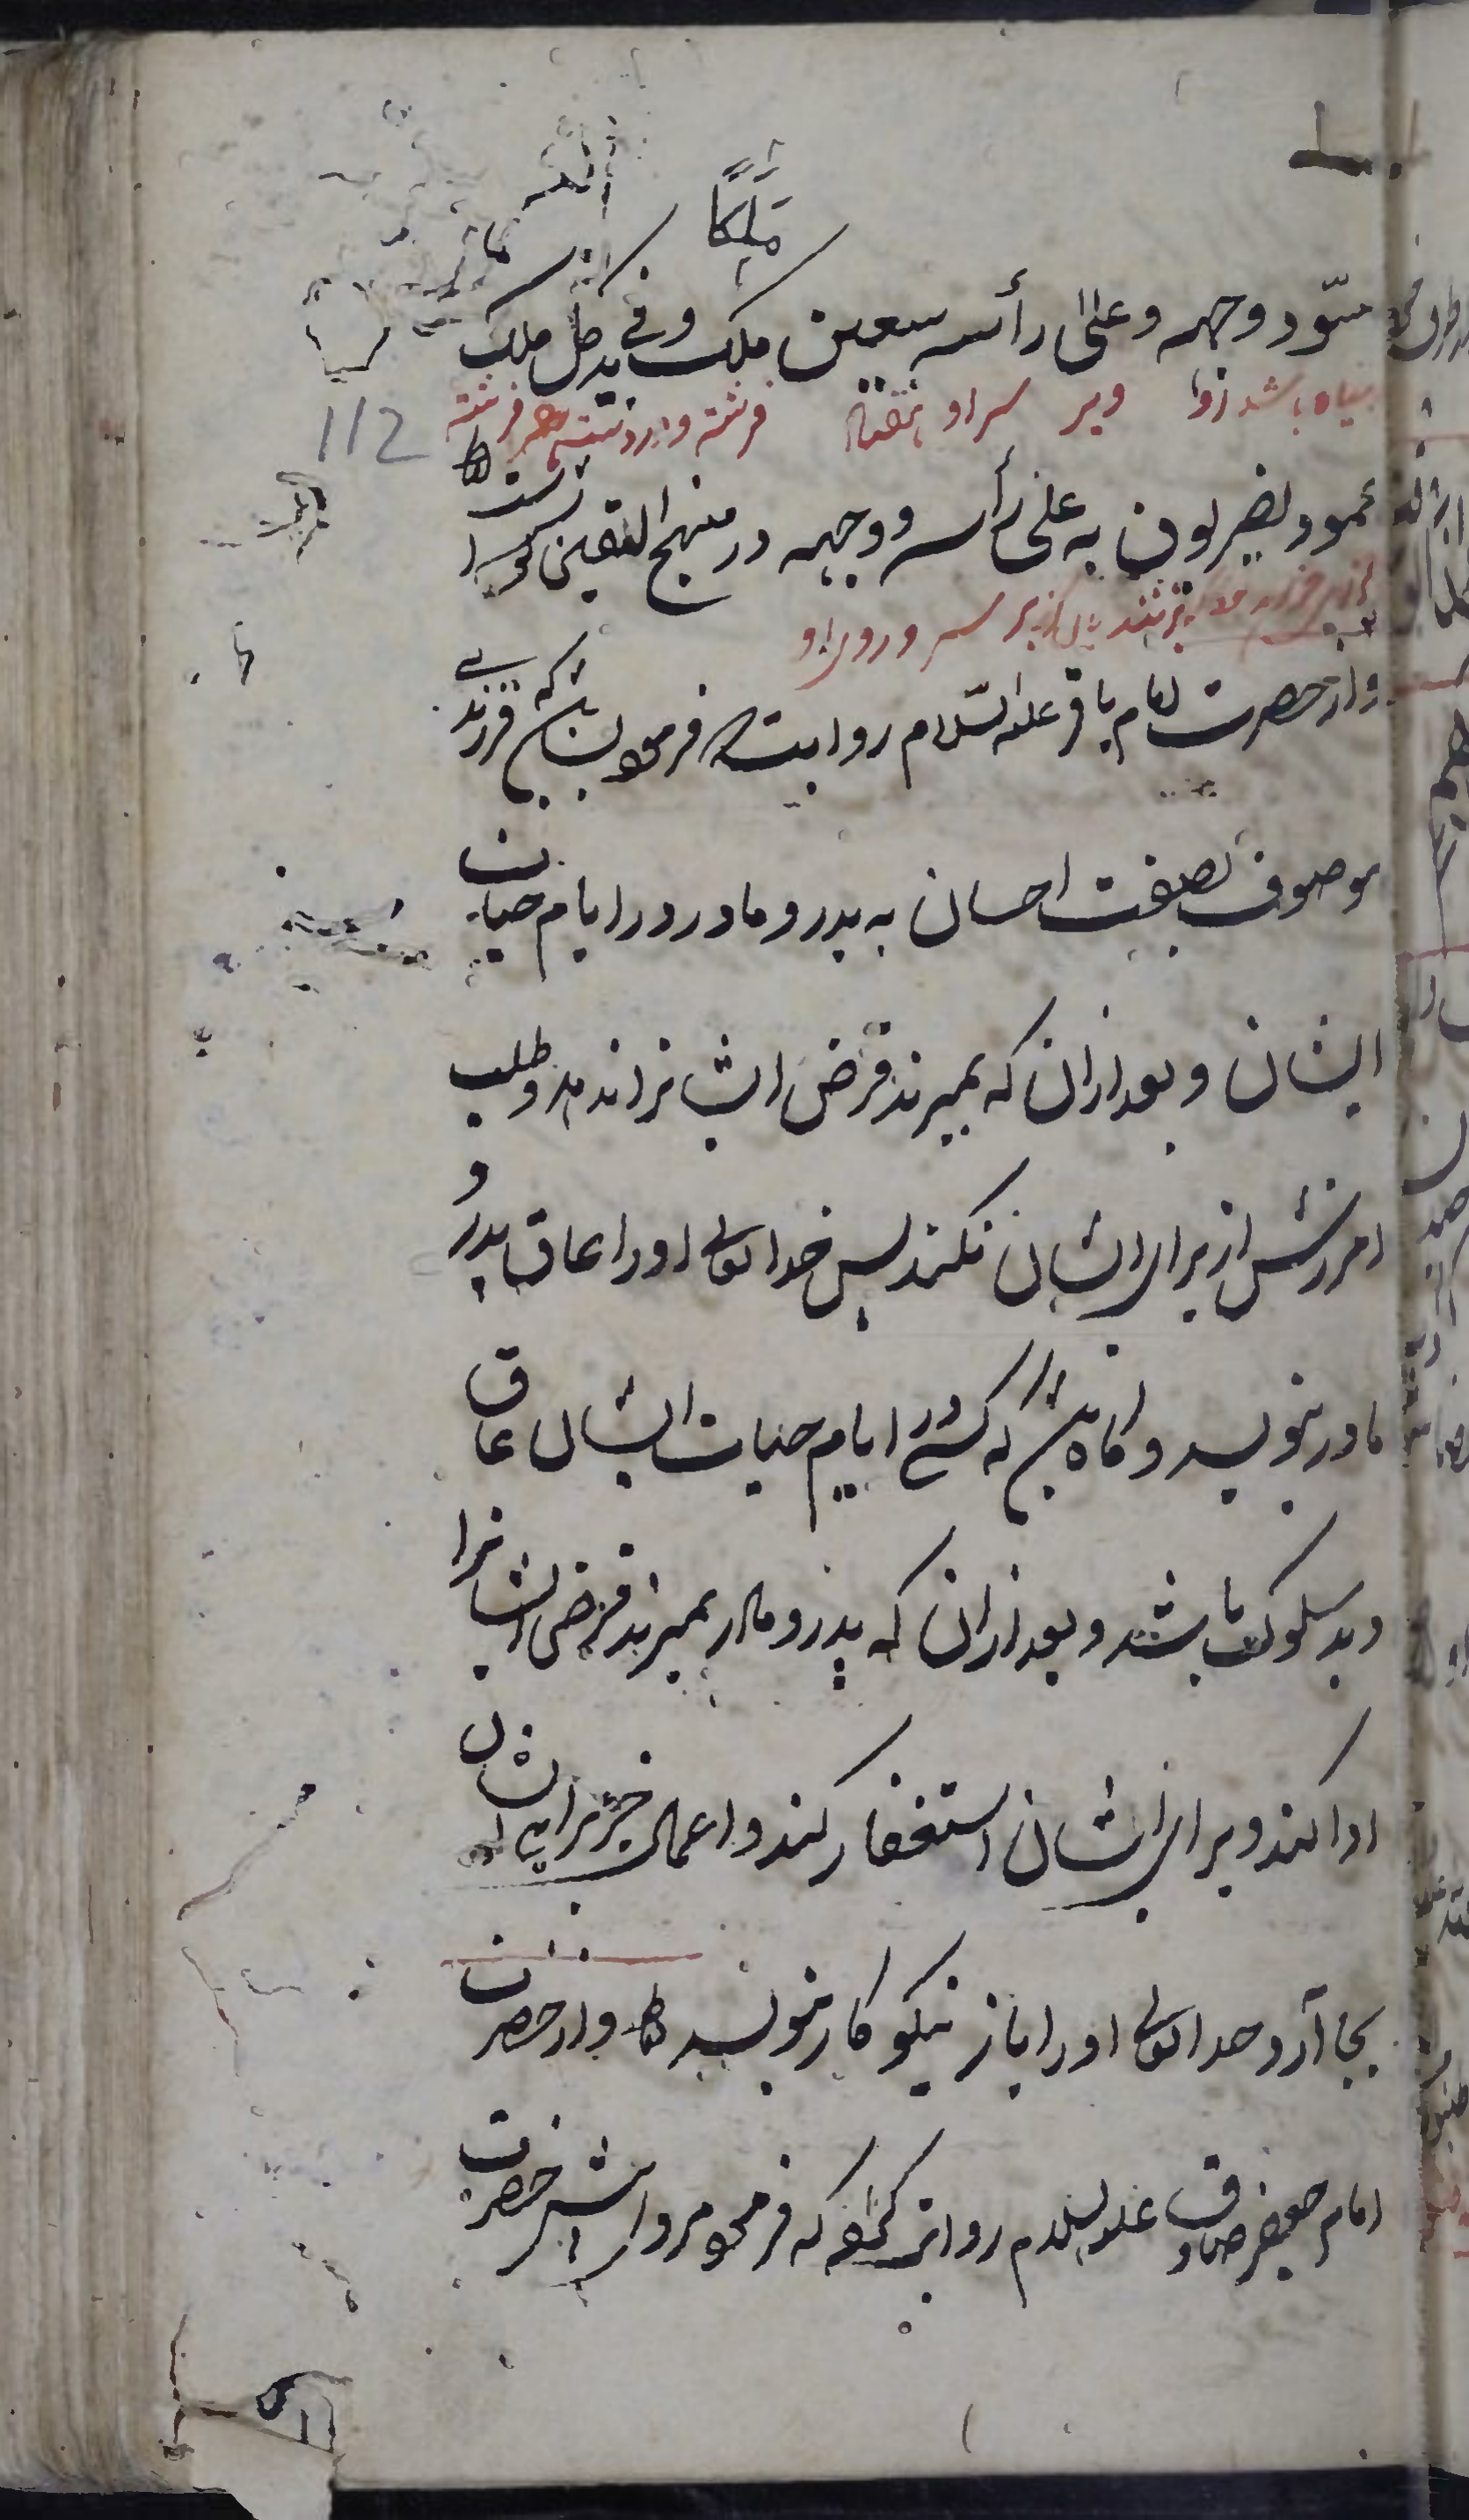 ملكًا
مسّود وجهه وعلى رأسه سبعين ملك وفي يد كل ملك
سیاه باشد زوا وبر سر او هفتاد فرشته ودر دست هر فرشته
112
عمود يضربون به على رأسه ووجهه در منهج الیقین است
بزنند بر سر و روی او
واز حضرت امام باقر علیه السّلام روایتست فرمود که باشد که فرزندی
موصوف بصفت احسان به پدر و مادر در ایام حیات
ایشان و بعد ازان که بمیرند قرض ایشانرا ندهد و طلب
امرزش از برای ایشان نکند پس خدایتعالی اورا عاق پدر و
مادر بنویسد و گاه باشد که کسی در ایام حیات ایشان عاق
و بد سلوک باشد و بعد ازان که پدر و مادر بمیرند قرض ایشانرا
ادا کند و برای ایشان استغفار کند و اعمال خیر برای ایشان
بجا آرد خدایتعالی اورا باز نیکو کار بنویسد و از حضرت
امام جعفر صادق علیه السلام روایتی که فرمود مرو از پیش حضرت